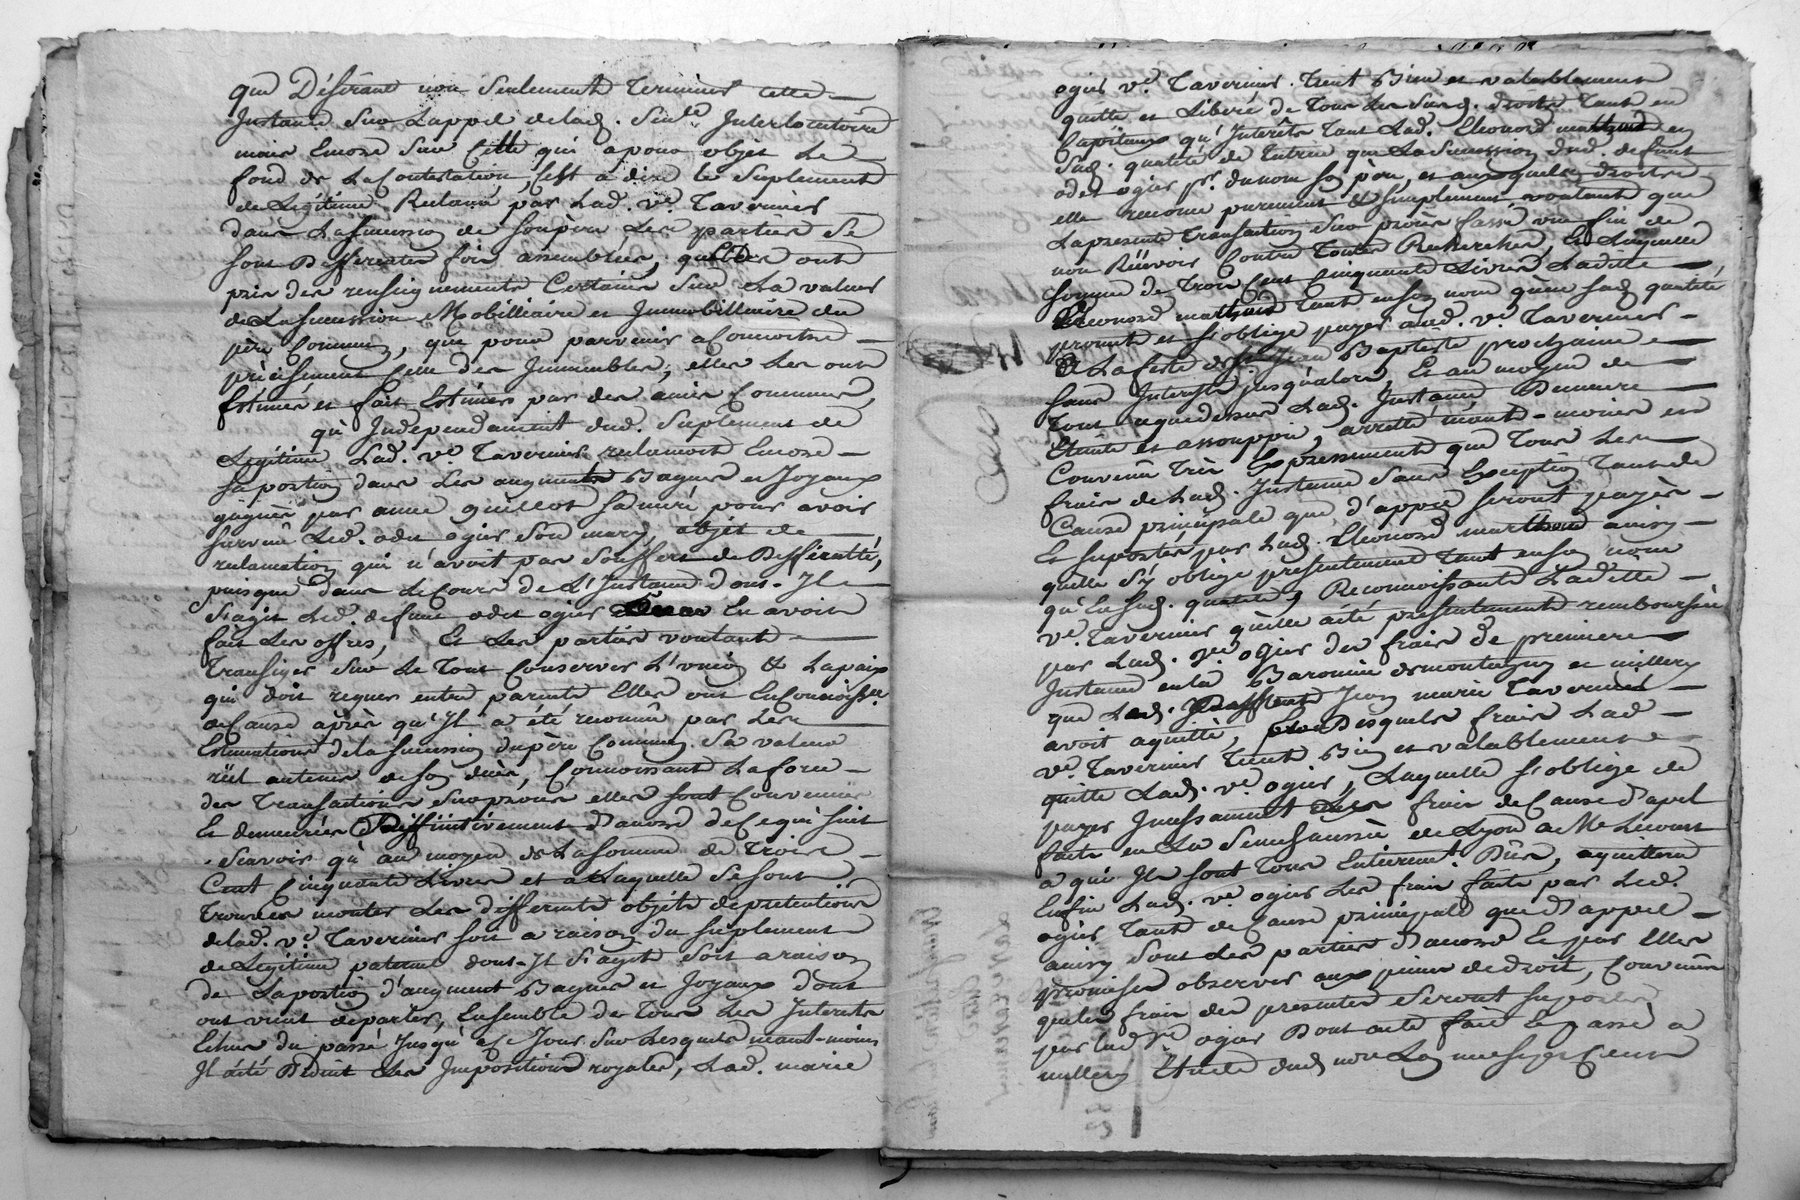 que Désirant non Seulement Terminer cette
Instance Sur Lappel delad. Sentce Interlocutoire
mais Encore Sur Celle qui apour objet Le
fond de LaContestation, C'est a dire le Suplement
de Légitime Reclamé par Lad. ve. Tavernier
dans Lasuccession de Sonpère Les parties Se
sont Differentes fois assemblées, quelles ont
pris des renseignements Certains Sur La valeur
deLasuccession Mobilliaire et Immobilliaire du
père Commun, que pour parvenir aConnoitre
précisement Celle des Immeubles, elles Les ont
Estimés et fait Estimer par des amis Communs,
qu'Independament dud. Suplement de
Légitime Lad. ve. Tavernier reclamoit Encore
Sa portion dans Les augments Bagues et Joyaux
gagnés par anne guillot Samère pour avoir
survécu Led. odet ogier Son mary, objet de
reclamation qui n'avoit pas Souffert de Difficulté,
puisque dans leCours de L'Instance dont Il
S'agit Led. defunt odet ogier En avoit
fait Les offres, Et Les parties voulant
Transiger Sur Le Tout Conserver L'union & Lapaix
qui doit regner entre parents Elles ont EnConnoissce.
deCause après qu'Il a été reconnu par Les
Estimations dela succession dupère Commun Sa valeur
réel autems deson decès, Connoissant Laforce
des Transactions Surprocès elles sont Convenues
Et demeurées Deffinitivement D'accord deCequi suit
Scavoir qu'au moyen de Lasomme de Trois
Cent Cinquante Livres et a Laquelle Se sont
Trouvées monter Les differents objets depretentions
delad. ve. Tavernier soit a raison du suplement
de Légitime paternel dont Il S'agit Soit araison
de Laportion d'augment Bagues et Joyaux dont
ont vient deparler, Ensemble de Tous Les Interets
Echus du passé Jusqu'à ce Jour Sur Lesquels neant-moins
Il aété Deduit Les Impositions royales, Lad. marie
ogier ve. Tavernier. Tient Bien et valablement
quitte et Libéré de Tous Les Susd. droits Tant en
Capitaux qu'Interêts Tant Lad. Eleonord mathoud en
Sad. qualité de Tutrice que LaSuccession dud. defunt
odet ogier pr. dunom son père, et auxquels droits
elle renonce purement & simplement voulant que
Lapresente Transaction Sur procès fasse une fin de
non Recevoir Contre Toutes Recherches, Et Laquelle
somme de Trois Cent Cinquante Livres Ladite
Eleonord mathoud Tant enson nom quen sad. qualité
promet et s'oblige payer alad. ve. Tavernier
a La feste de St. Jean Baptiste prochaine
sans Interest jusqualors, Et au moyen de
Tout ceque dessus Lad. Instance Demeure
Eteinte et assouppie, arretté néant-moins et
Convenu Très Expressement que Tous Les
frais deLad. Instance Sans Exception Tant de
Cause principale que d'appel seront payés
Et suportés par Lad. Eleonord mathoud ainsy
quelle s'y oblige presentement Tant enson nom
qu'En sad. qualité, Reconnoissante Ladite
ve. Tavernier quelle aété presentement remboursée
par Lad. ve. ogier des frais de premiere
Instance enla Baronnie demontagny et millery
que Led. Deffunt Jean marie Tavernier
avoit aquitté, Desquels frais Lad.
ve. Tavernier Tient Bien et valablement
quitte Lad. ve. ogier, Laquelle s'oblige de
payer Incessament Les frais deCause d'apel
faits en La Senechaussée de Lyon a Me Lecourt
a qui Ils sont Tous Entierement Dûs, aquittera
Enfin Lad. ve. ogier Les frais faits par Led.
ogier Tant deCause principale que D'appel
ainsy sont Les parties D'accord Et par Elles
promis observer aux peines dedroit, Convenu
queles frais des presentes Seront suportés
par lad ve ogier Dont acte fait Et passé a
millery Etude dud. non Lan mil sept Cent